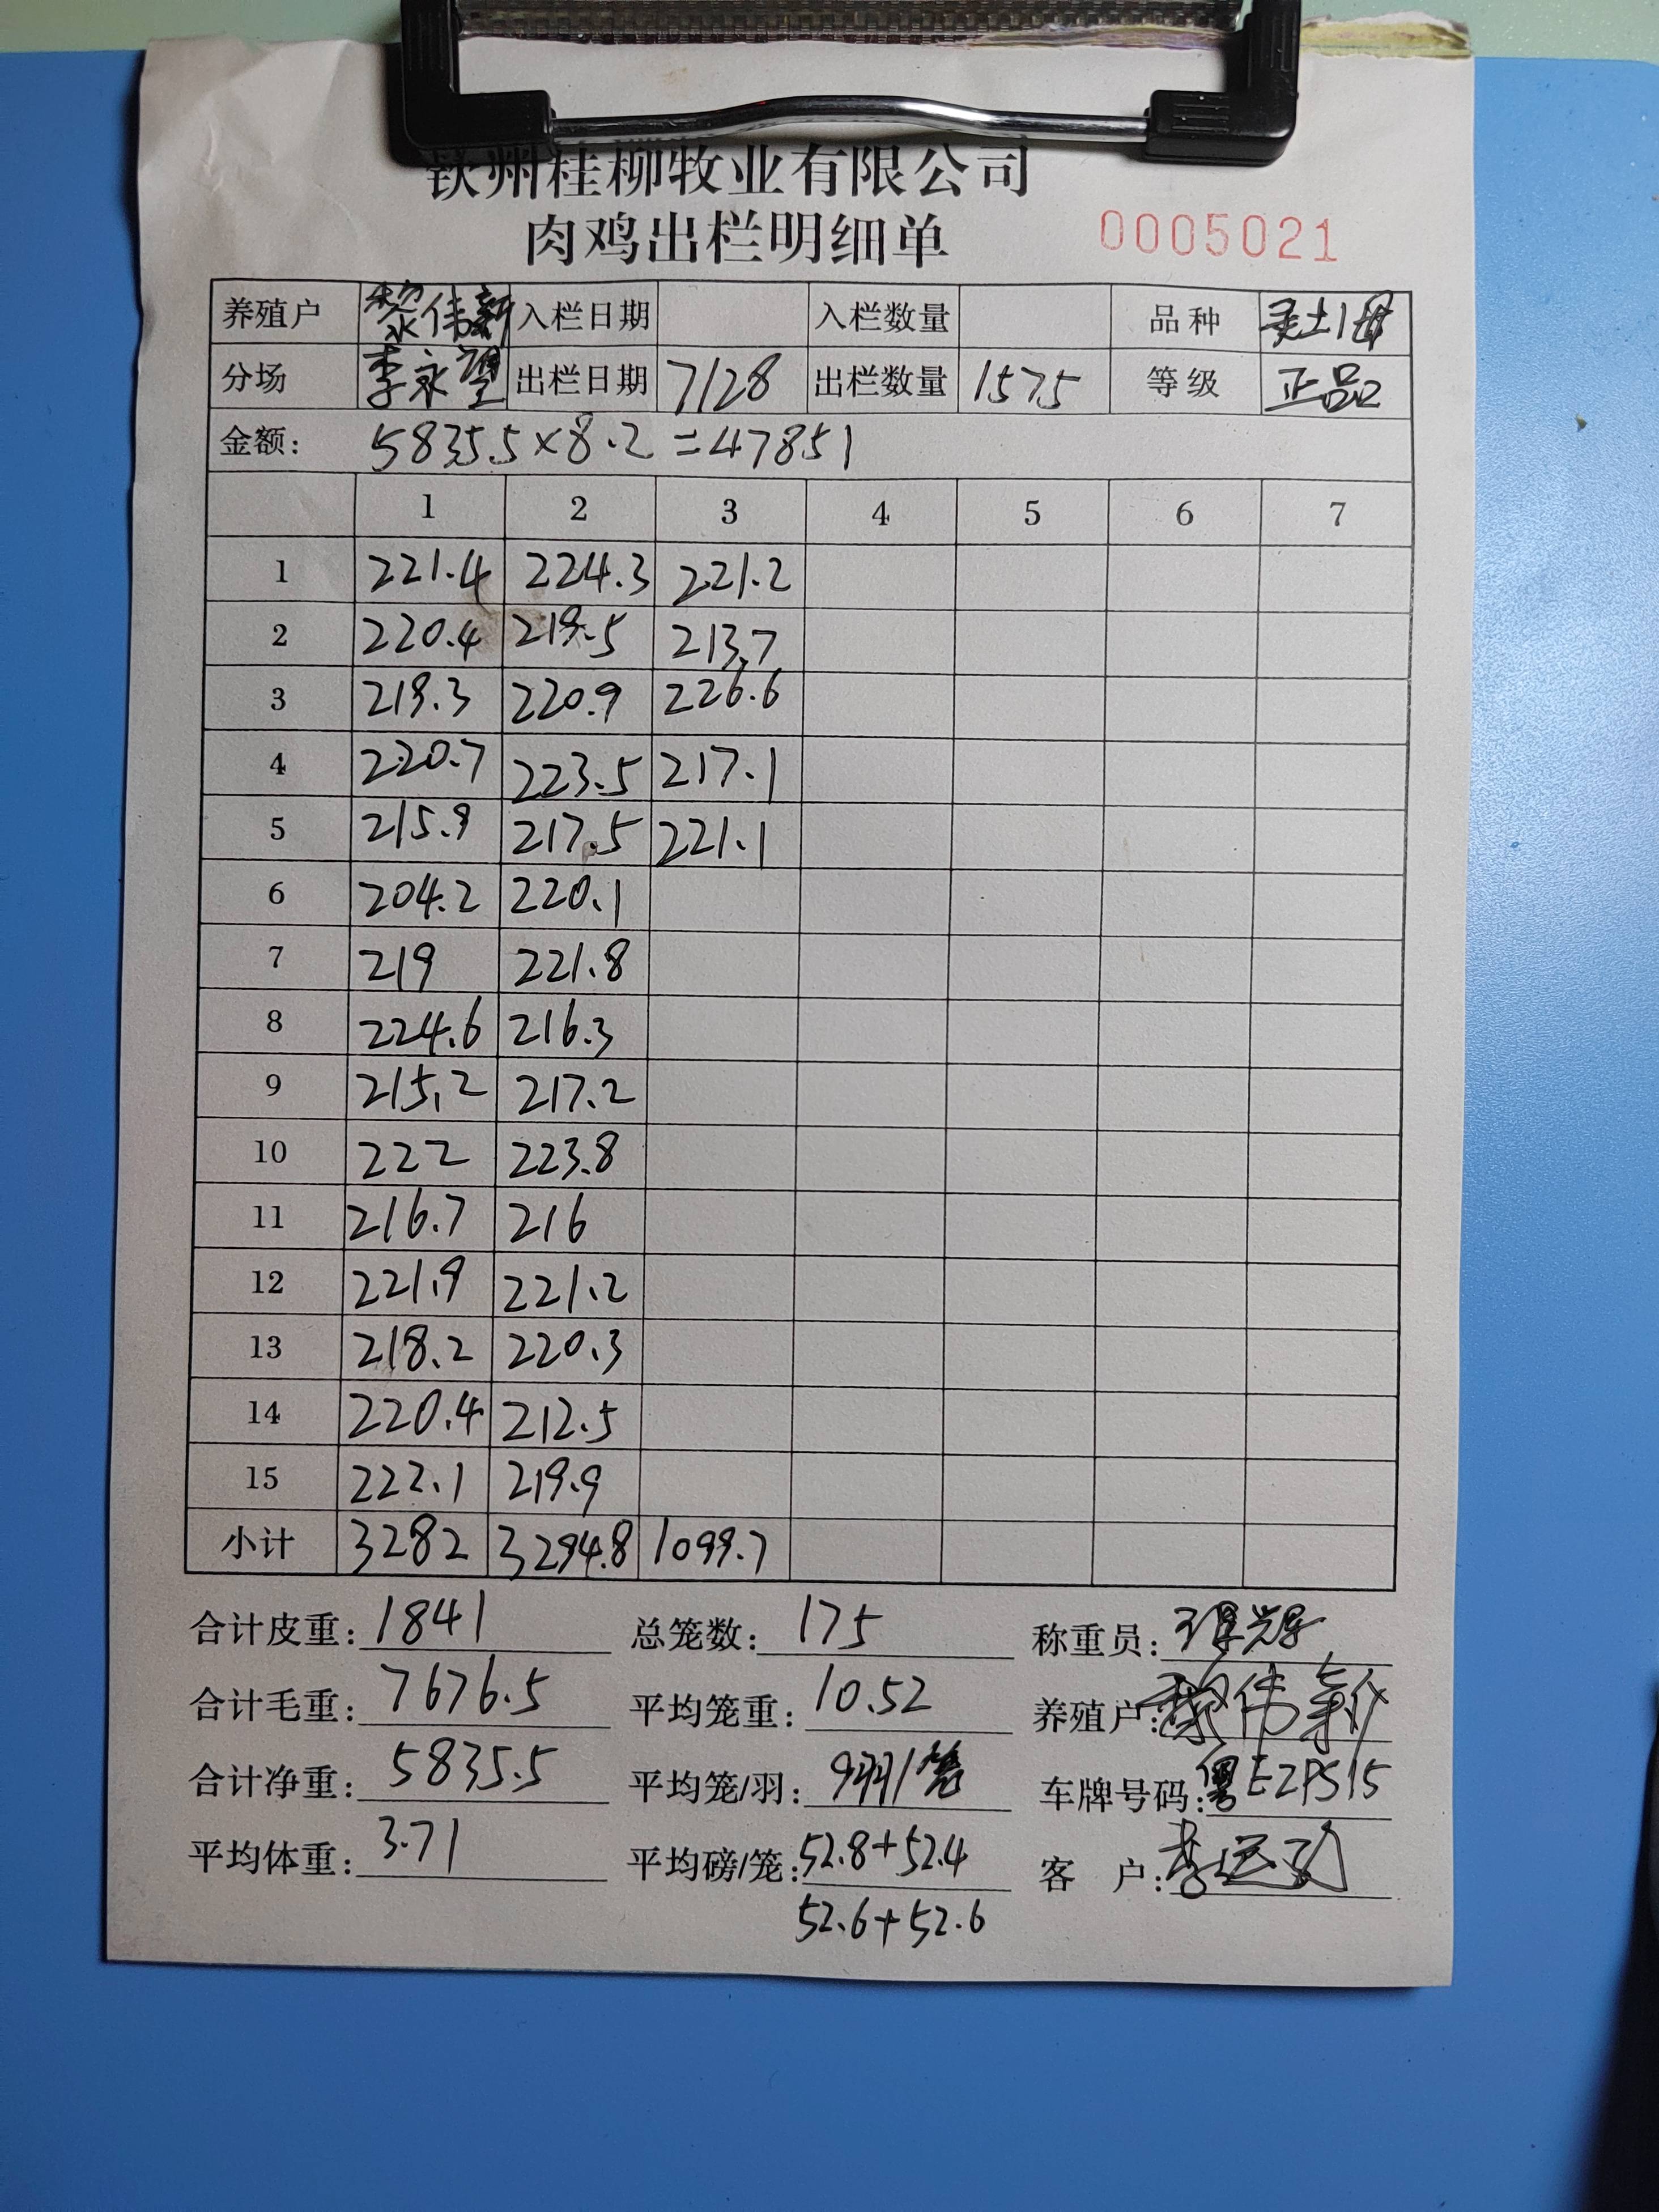 钦州桂柳牧业有限公司
肉鸡出栏明细单 0005021
养殖户 黎伟新 入栏日期 入栏数量 品种 灵土1母
分场 李永望 出栏日期 7/28 出栏数量 1575 等级 正品
金额: 5835.5×8.2=47851
1 2 3 4 5 6 7
1 221.4 224.3 221.2
2 220.4 219.5 213.7
3 219.3 220.9 226.6
4 220.7 223.5 217.1
5 215.9 217.5 221.1
6 204.2 220.1
7 219 221.8
8 224.6 216.3
9 215.2 217.2
10 222 223.8
11 216.7 216
12 221.9 221.2
13 218.2 220.3
14 220.4 212.5
15 222.1 219.9
小计 3282 3294.8 1099.7
合计皮重: 1841 总笼数: 175 称重员:
合计毛重: 7676.5 平均笼重: 10.52 养殖户: 黎伟新
合计净重: 5835.5 平均笼/羽: 9羽/笼 车牌号码: 粤EZPS15
平均体重: 3.71 平均磅/笼: 52.8+52.4 客 户:
52.6+52.6